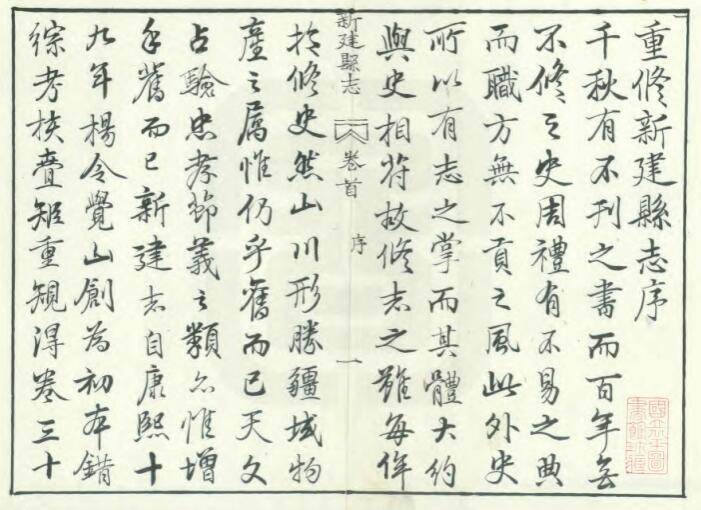 重修新建縣志序
千秋有不刊之書而百年無
不修之史周禮有不易之典
而職方無不貢之風此外史
所以有志之掌而其體大約
與史相符故修志之難每侔
新建縣志
卷首
序
一
於修史然山川形勝疆域物
產之屬惟仍乎舊而已天文
占驗忠孝節義之類亦惟增
乎舊而已新建志自康熙十
九年楊令覺山創為初本錯
綜考核疊矩重規得卷三十